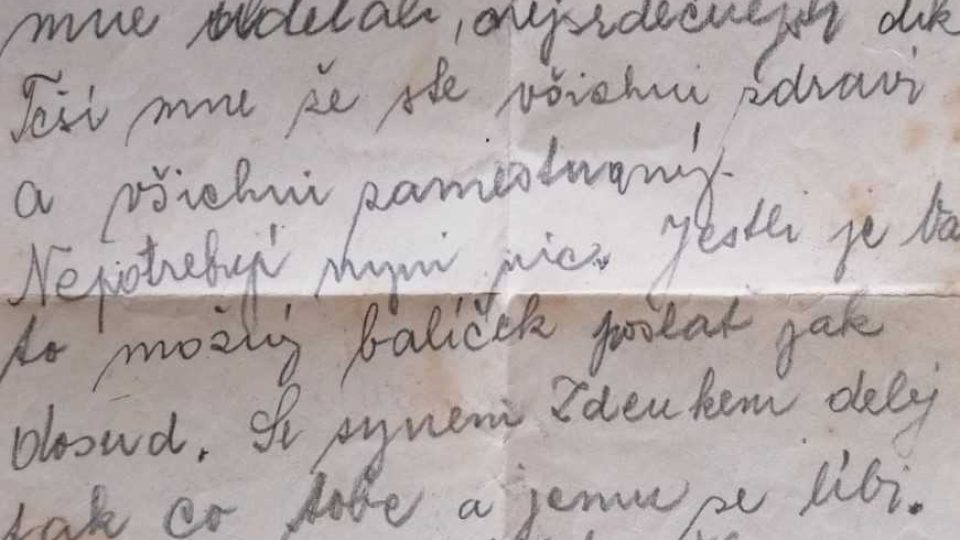 mne oddelali, nejsrdečnejší dík
Těší mne že ste všichni zdraví
a všichni zamestnaný.
Nepotrebuji nyni nic. Jestli je Va
to možný balíček poslat jak
dosud. Se synem Zdenkem delej
tak co tobe a jemu se líbi.